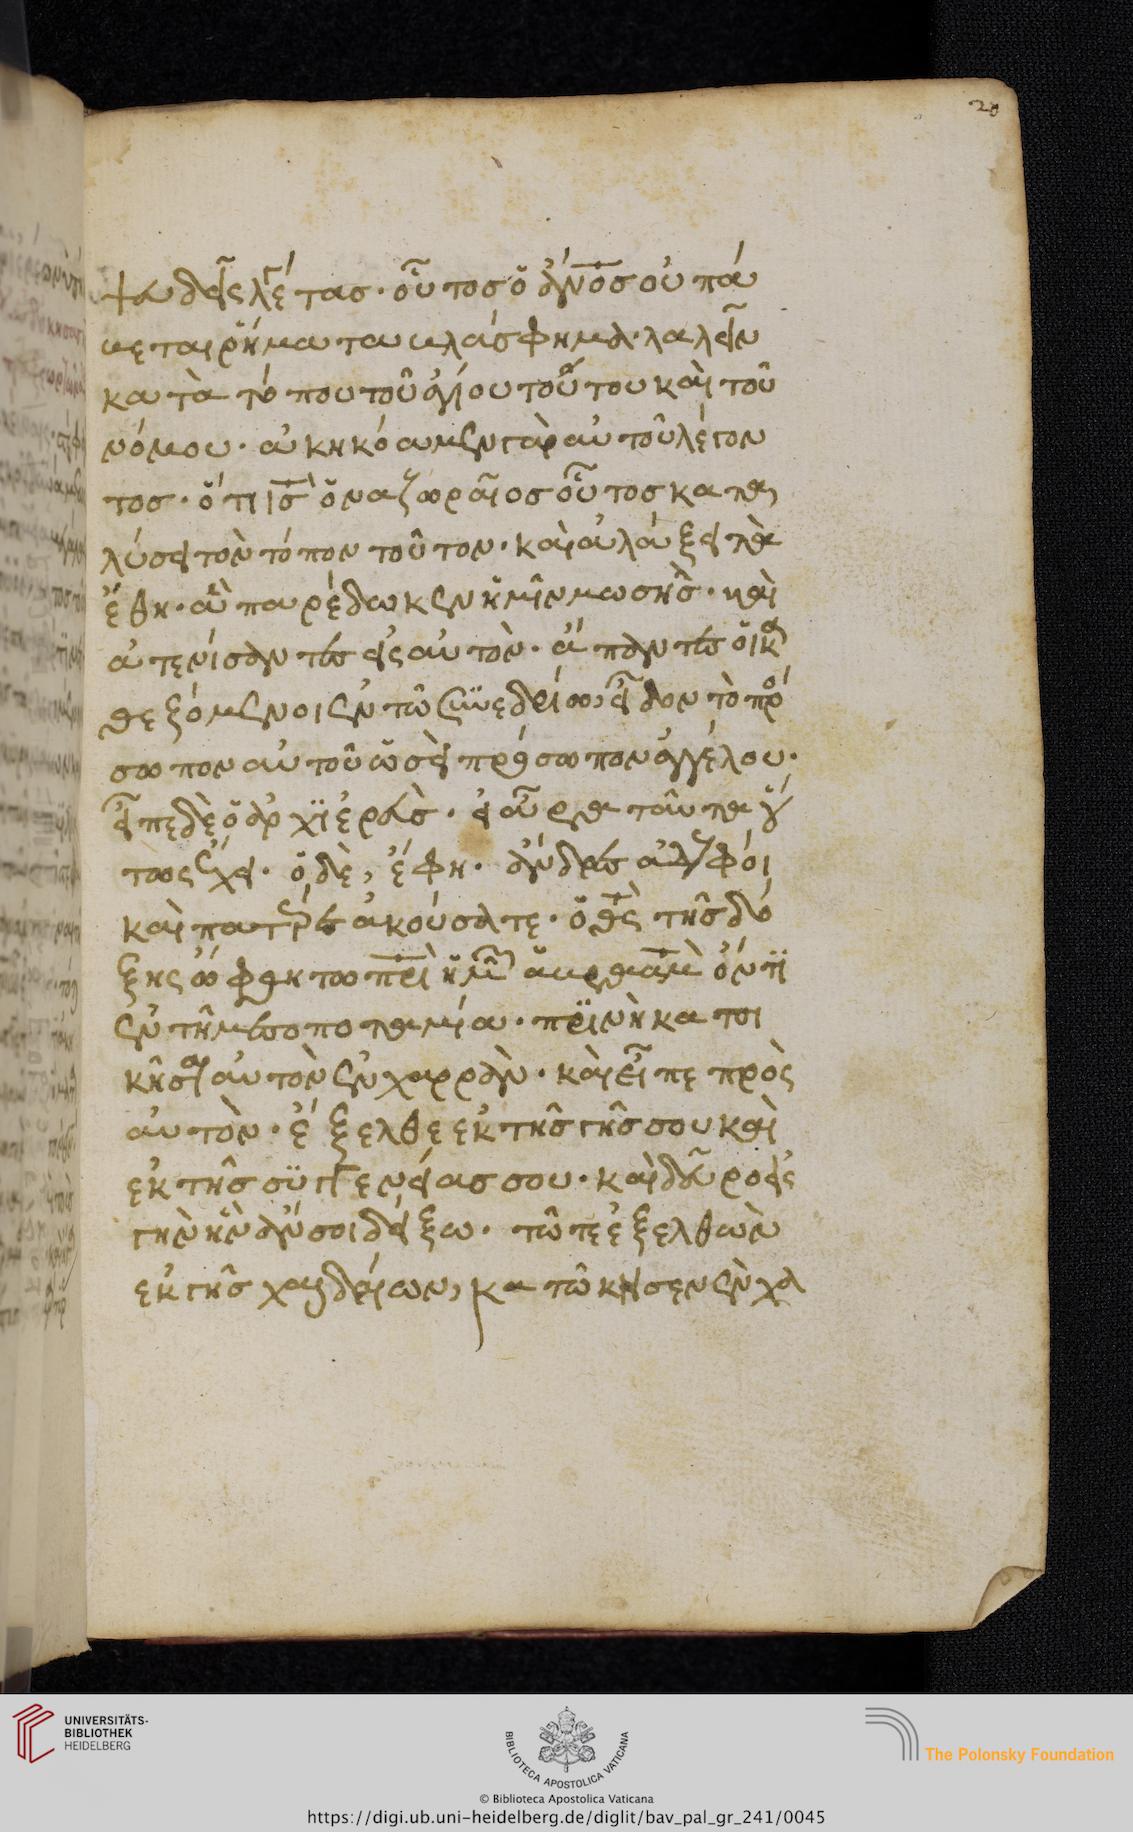 20
ψευδεῖς λέγοντας· οὗτος ὁ ἄνος οὐ παύ
εται ῥήματα βλάσφημα λαλεῖν
κατὰ τόπου τοῦ ἁγίου τούτου καὶ τοῦ
νόμου· ἀκηκόαμεν γὰρ αὐτοῦ λέγον
τος· ὅτι ις ὁ ναζωραῖος οὗτος κατα
λύσει τὸν τόπον τοῦτον· καὶ ἀλάξει τὰ
ἔθη· ἃ παρέδωκεν ἡμῖν μωσῆς· καὶ
ἀτενίσαντες εἰς αὐτὸν· ἅπαντες οἱ κα
θεζόμενοι ἐν τῶ συνεδρίω, εἶδον τὸ πρό
σωπον αὐτοῦ ὡσεὶ πρόσωπον ἀγγέλου·
εἶπε δὲ ὁ ἀρχϊερεὺς· εἰ ἄρα ταῦτα οὕ
τως ἔχει· ὁ δὲ, ἔφη· ἄνδρες ἀδελφοὶ
καὶ πατέρες ἀκούσατε· ὁ θς τῆς δό
ξης ὤφθη τω πρι ἡμῶν ἀβρααμ ὄντϊ
ἐν τῆ μεσοποταμία· πρὶν ἢ κατοι
κῆσαι αὐτὸν ἐν χαρράν· καὶ εἶπε πρὸς
αὐτὸν· ἔξελθε ἐκ τῆς γῆς σου καὶ
ἐκ τῆς συγγενείας σου· καὶ δεῦρο εἰς
γῆν ἣν ἄν σοι δείξω· τότε ἐξελθὼν
ἐκ γῆς χαλδαίων, κατώκησεν ἐν χα
UNIVERSITÄTS-
BIBLIOTHEK
HEIDELBERG
BIBLIOTECA APOSTOLICA VATICANA
The Polonsky Foundation
© Biblioteca Apostolica Vaticana
https://digi.ub.uni-heidelberg.de/diglit/bav_pal_gr_241/0045